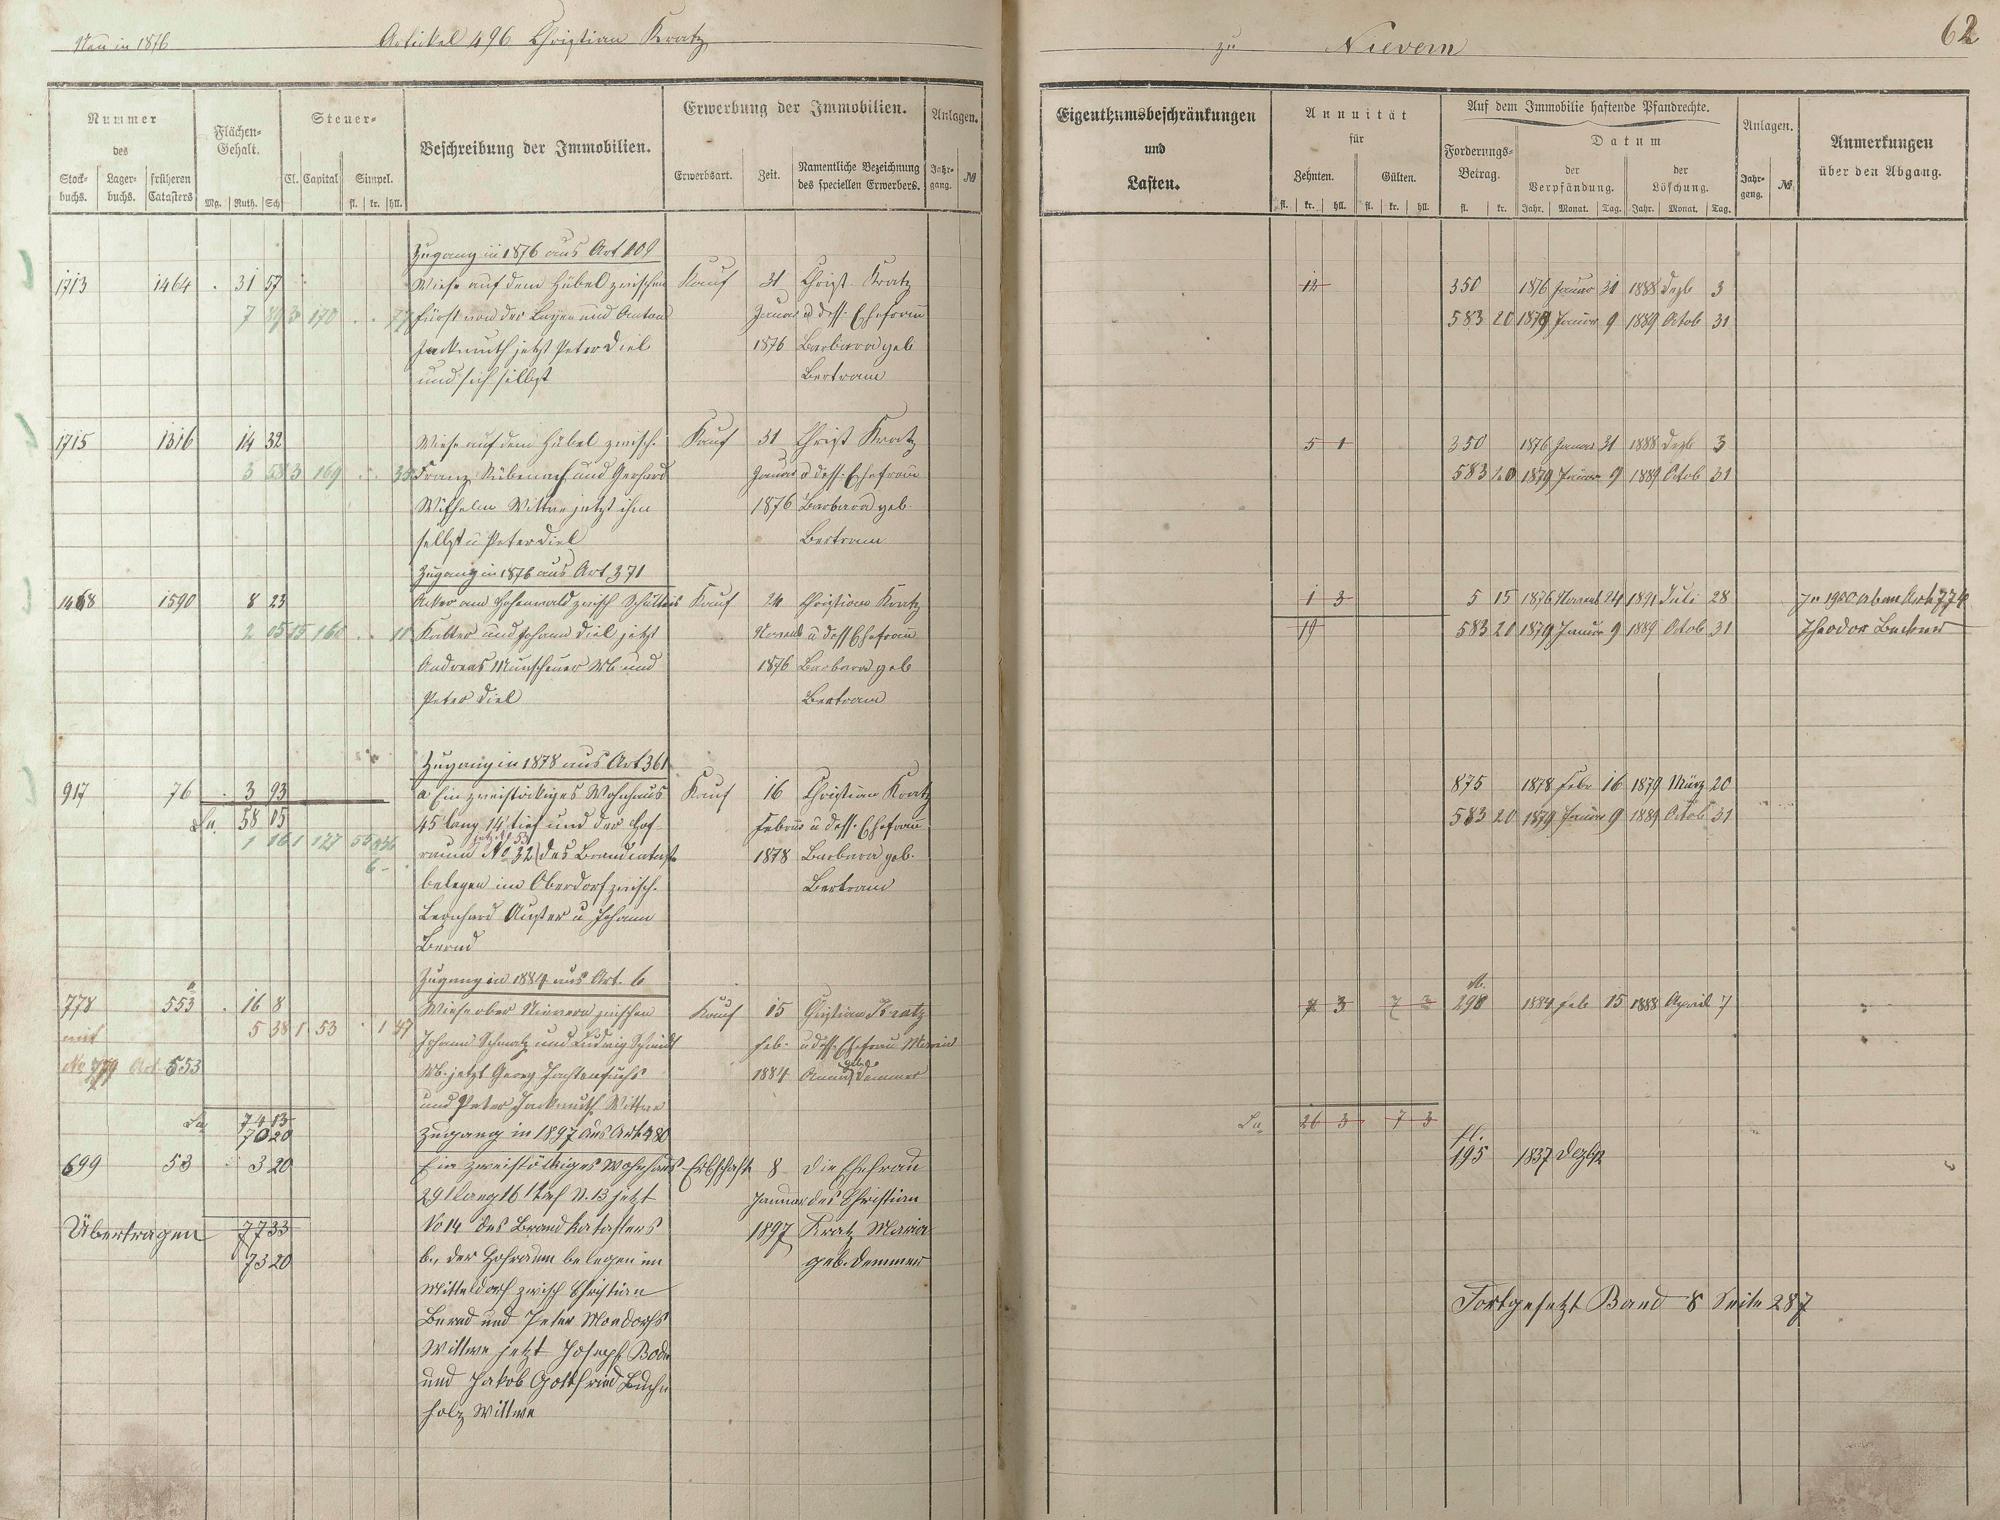 Neu in 1876 Artikel 496 Christian Kratz
Nummer
des
Stock-buchs. Lager-buchs. früheren Catasters
Flächen-Gehalt.
Mg. Ruth. Sch
Steuer-
Cl. Capital Simpel.
fl. kr. hll.
Beschreibung der Immobilien.
Erwerbung der Immobilien.
Erwerbsart. Zeit. Namentliche Bezeichnung des speciellen Erwerbers.
Anlagen.
Jahr-gang. №
Zugang in 1876 aus Art 109
1713 1464 . 31 57 Wiese auf dem Hübel zwischen Kauf 31 Christ. Kratz
7 3 170 . . 77 Fürst von der Leyen und Anton Januar u dess. Ehefrau
Jackmuth jetzt Peter Diel 1876 Barbara geb
und sich selbst Bertram
1715 1316 14 32 Wiese auf dem Hübel zwisch. Kauf 31 Christ Kratz
3 58 3 169 . . 35 Franz Rübenach und Gerhard Januar u dess. Ehefrau
Wilhelm Wittwe jetzt ihm 1876 Barbara geb.
selbst u Peter Diel Bertram
Zugang in 1876 aus Art. 371
1468 1590 8 23 Acker am Hohenwald zwisch Kauf 24 Christian Kratz
2 05 15 160 . . 11 und Johann Diel jetzt Novemb u dess Ehefrau
Andreas Munscheuer Wb. und 1876 Barbara geb
Peter Diel Bertram
Zugang in 1878 aus Art 361
917 76 . 3 93 a Ein zweistöckiges Wohnhaus Kauf 16 Christian Kratz
La. 58 05 45' lang 14' tief und der Hof- Februar u dess. Ehefrau
1 16 1 127 raum No 32 des Brandcatast. 1878 Barbara geb.
jetzt No 53
6 - belegen im Oberdorf zwisch. Bertram
Leonhard Auster u. Johann
Bernd
Zugang in 1884 aus Art. 6
778 553 . 16 8 Wiese ober Nievern zwischen Kauf 15 Christian Kratz
mit 5 38 1 53 . 1 47 Johann Schmatz und Ludwig Schmidt Feb. u dess. Ehefrau Maria
No 779 Art. 553 Wb. jetzt Georg 1884 Anna geb. Demmer
und Peter Jackmuth Wittwe
La. 74 13
70 20 Zugang in 1897 aus Art 480
699 53 3 20 Ein zweistöckiges Wohnhaus Erbschaft 8 die Ehefrau
29' lang 16' tief N. 13 jetzt Januar des Christian
Übertragen 77 33 No 14 des Brandkatasters 1897 Kratz Maria
73 20 b., der Hofraum belegen im geb. Demmer
Mitteldorf zwisch Christian
Bernd und Peter Mondorfs
Wittwe jetzt Joseph Bode
und Jakob Gottfried Buch-
holz Wittwe
zu Nievern 62
Eigenthumsbeschränkungen
und
Lasten.
Annuität
für
Zehnten. Gülten.
fl. kr. hll. fl. kr. hll.
Auf dem Immobilie haftende Pfandrechte.
Forderungs-Betrag. Datum
der Verpfändung. der Löschung.
fl. kr. Jahr. Monat. Tag. Jahr. Monat. Tag.
Anlagen.
Jahr-gang. №.
Anmerkungen
über den Abgang.
12 350 1876 Januar 31 1888 Dezb 3
583 20 1879 Januar 9 1889 Octob 31
5 1 350 1876 Januar 31 1888 Dezb 3
583 20 1879 Januar 9 1889 Octob 31
1 3 5 15 1876 Novemb 24 1891 Juli 28 In 1900 ab an Art 774
19 583 20 1879 Januar 9 1889 Octob 31 Theodor
875 1878 Febr 16 1879 März 20
583 20 1879 Januar 9 1889 Octob 31
M.
7 3 7 3 298 1884 Feb 15 1888 April 7
La. 26 3 7 3
fl.
195 1837 Dezbr
Fortgesetzt Band 8 Seite 287